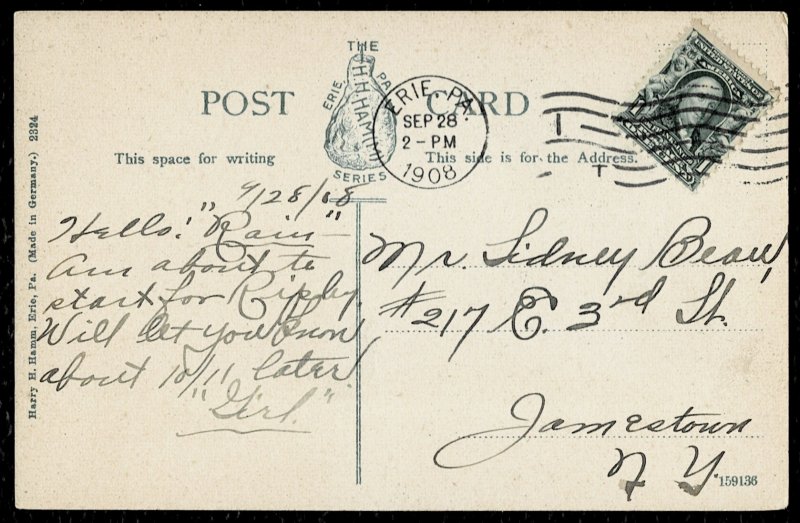 POST CARD
THE
H.H.HAMM
ERIE PA
SERIES
ERIE, PA.
SEP 28
2 - PM
1908
This space for writing
This side is for the Address.
Harry H. Hamm, Erie, Pa. (Made in Germany.) 2324
9/28/08
Hello! "Rain" -
Am about to
start for Ripley.
Will let you know
about 10/11 later
"Girl."
Mr. Sidney Beard,
#217 E. 3rd St.
Jamestown
N Y.
159136